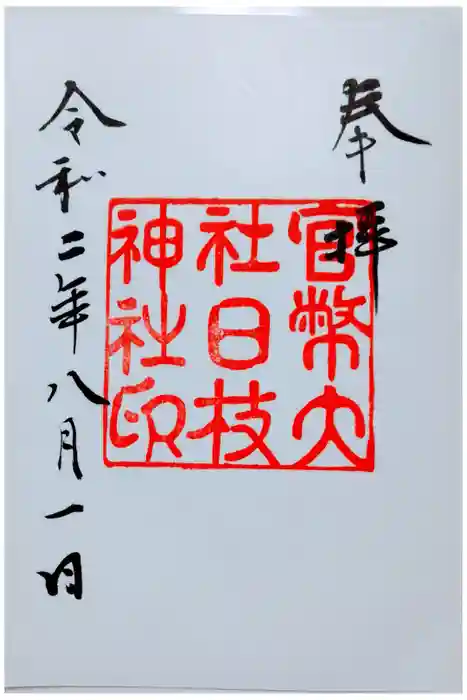 奉拝
官幣大
社日枝
神社印
令和二年八月一日